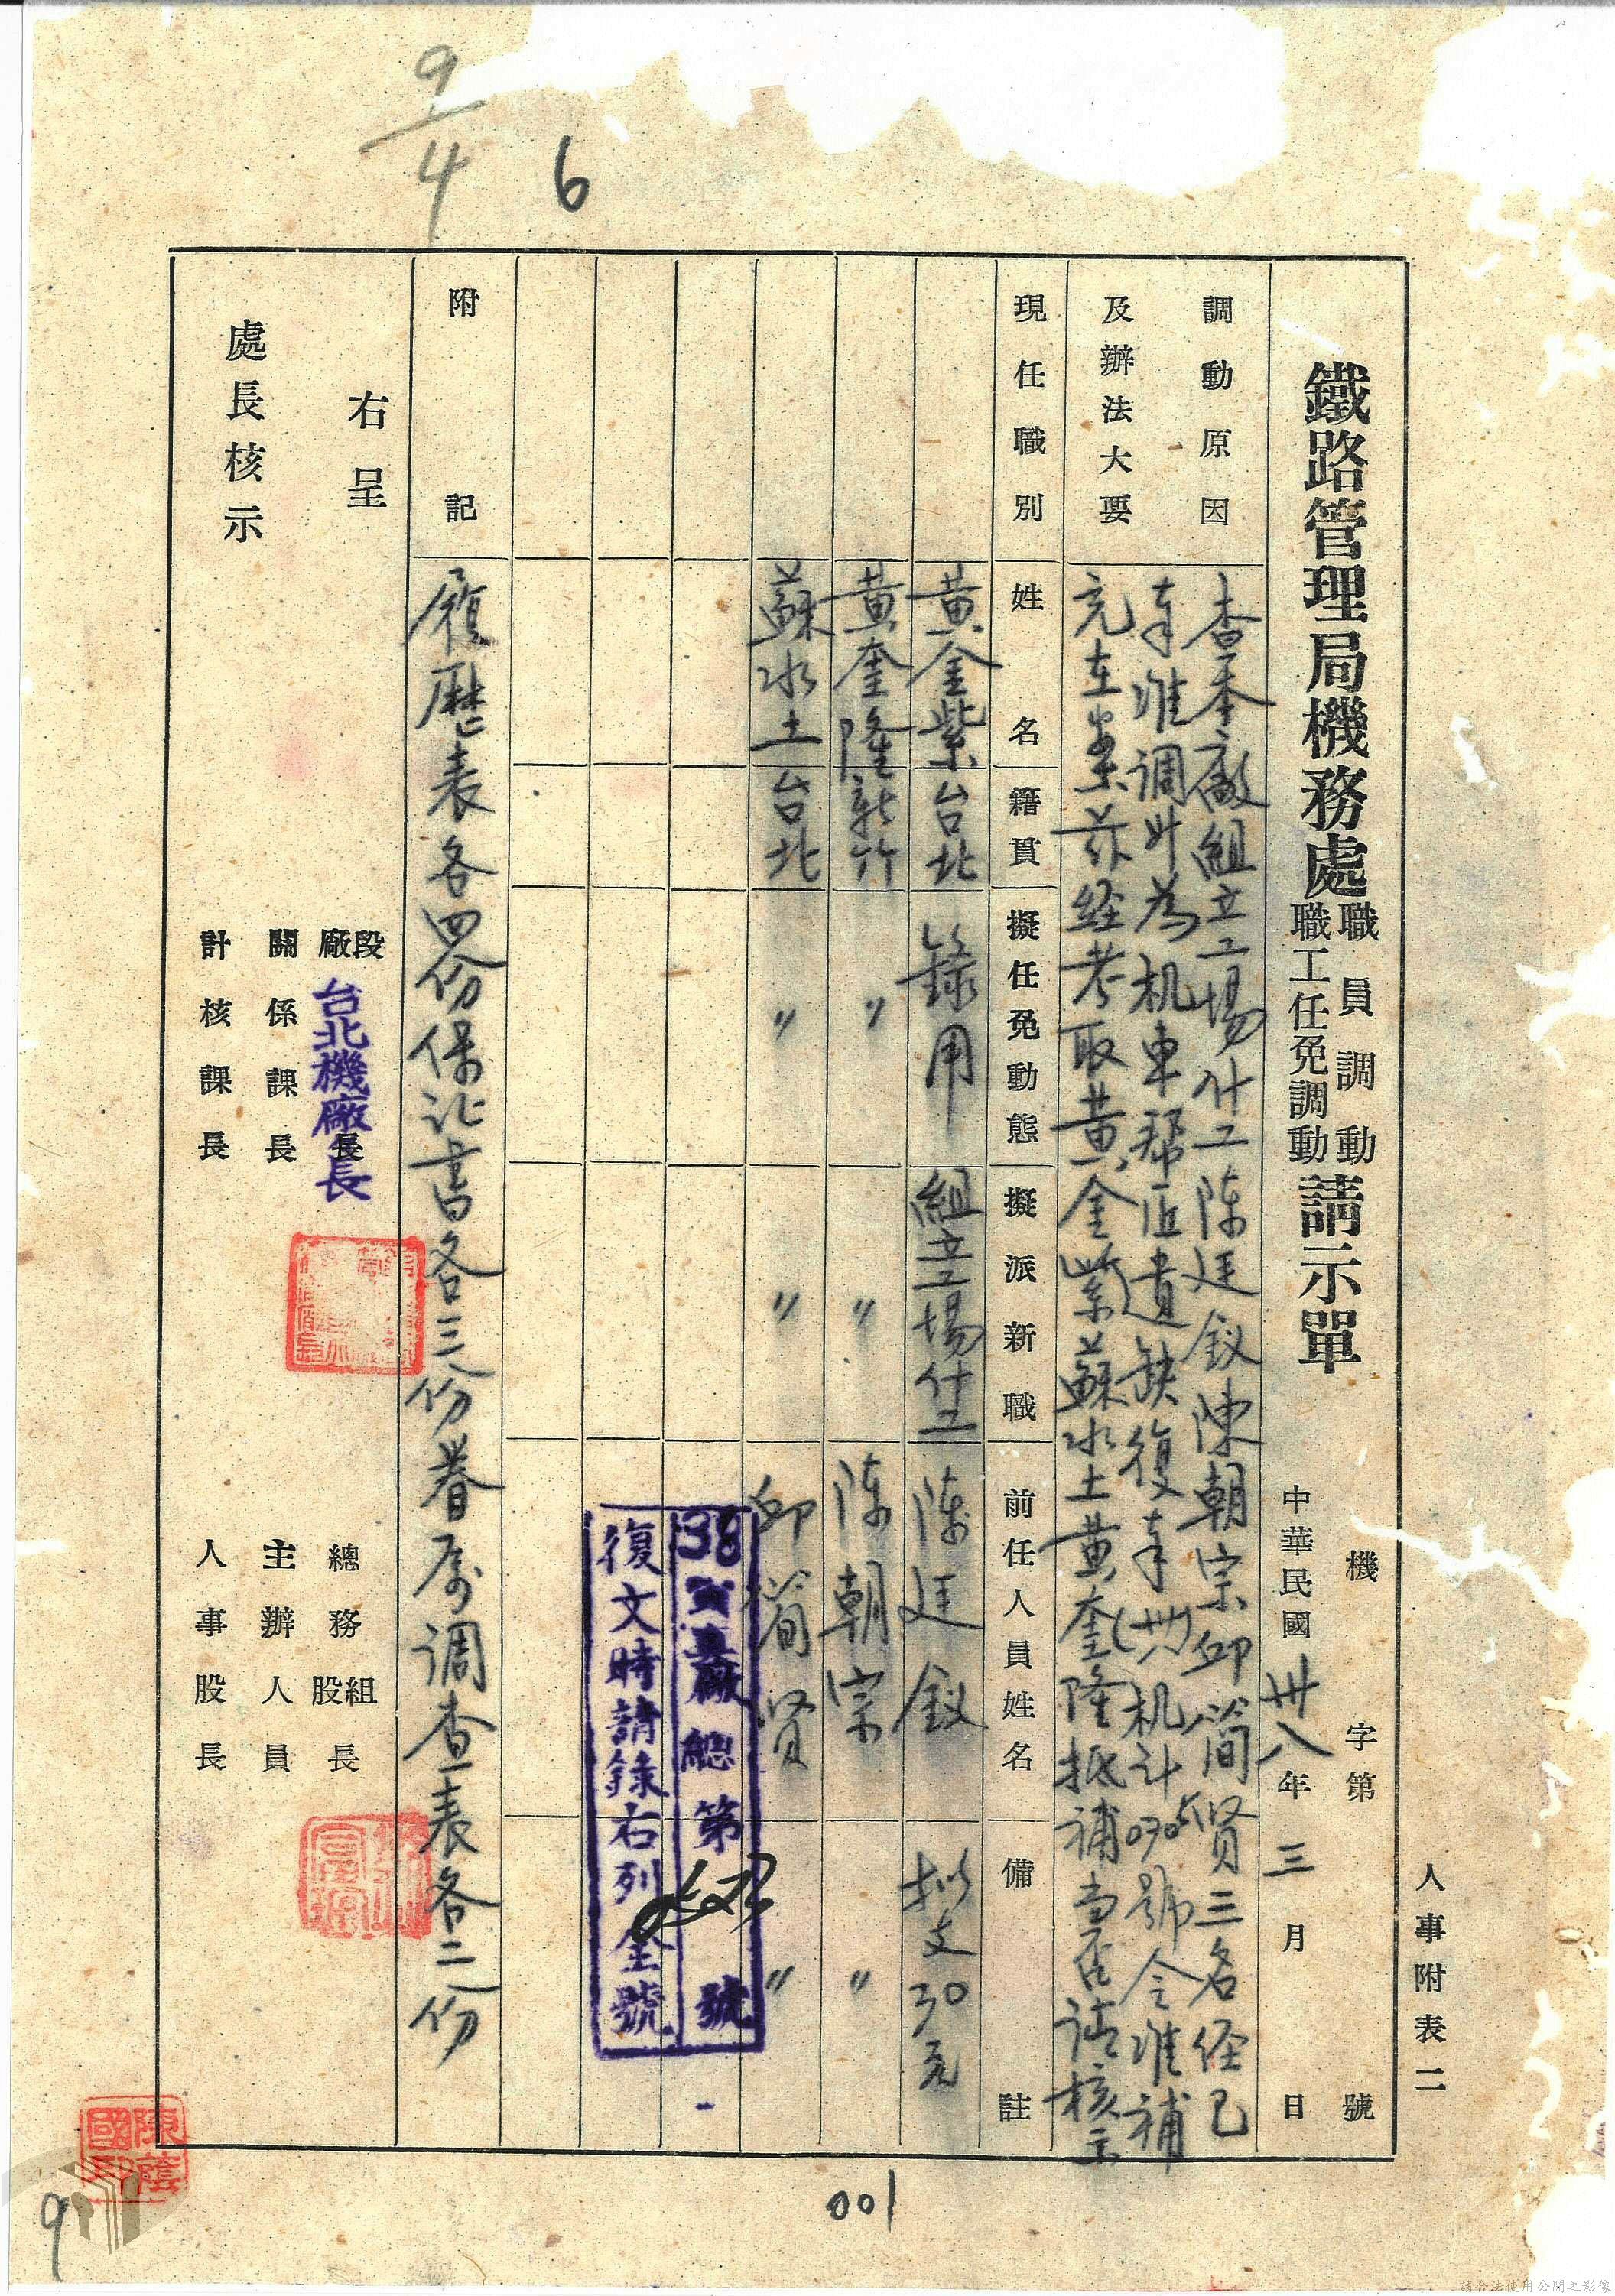 人事附表二
鐵路管理局機務處職員調動職工任免調動請示單
機 字第 號
中華民國卅八年三月 日
調動原因及辦法大要
查本廠組立工場什工陈廷釵陳朝宗邱簡贤三名经已
奉准调升為机車帮匠遺缺復奉(卅八)机计0705號令准補
充在案茲经考取黄金紫蘇水土黄奎隆抵補当否请核示
現任職別 姓名 籍貫 擬任免動態 擬派新職 前任人員姓名 備註
黄金紫 台北 錄用 組立工場什工 陈廷釵 拟支30元
黄奎隆 新竹 〃 〃 陈朝宗 〃
蘇水土 台北 〃 〃 邱簡贤 〃
38寅真廠總第 號
復文時請錄右列全號
附記
履歷表各四份保证書各三份眷属调查表各二份
右呈
處長核示
段廠長 台北機廠長
關係課長
計核課長
總務組股長
主辦人員
人事股長
陳蔭國印
9/4
6
001
9
請合法使用公開之影像